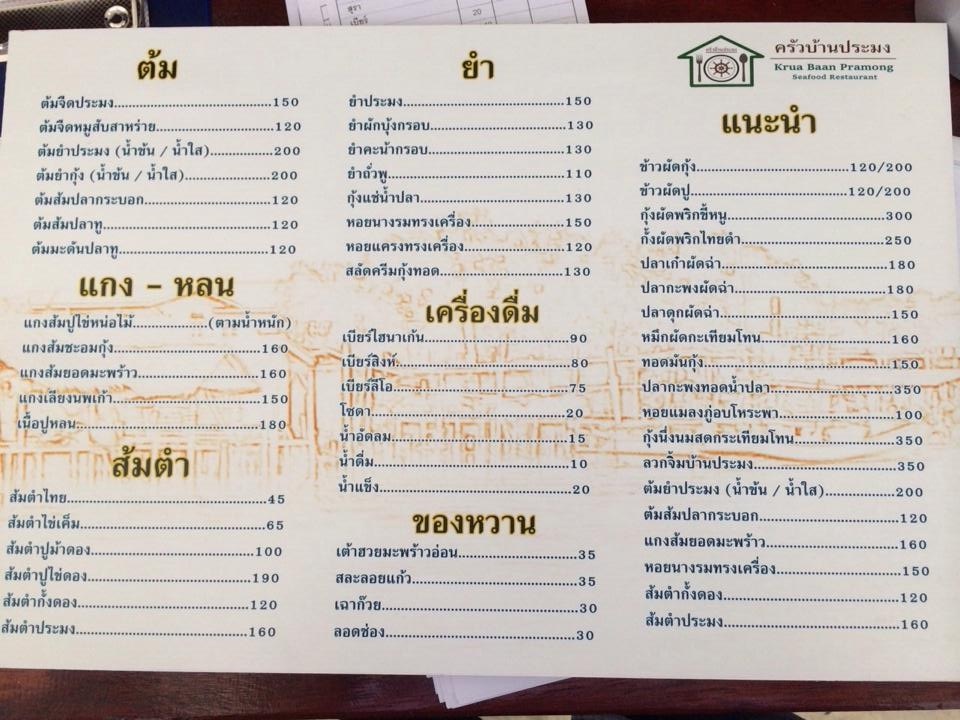 สุรา
เบียร์
20
ครัวบ้านประมง
Krua Baan Pramong
Seafood Restaurant
ต้ม
ต้มจืดประมง.....150
ต้มจืดหมูสับสาหร่าย.....120
ต้มยำประมง (น้ำข้น / น้ำใส).....200
ต้มยำกุ้ง (น้ำข้น / น้ำใส).....200
ต้มส้มปลากระบอก.....120
ต้มส้มปลาทู.....120
ต้มมะดันปลาทู.....120
แกง - หลน
แกงส้มปูไข่หน่อไม้.....(ตามน้ำหนัก)
แกงส้มชะอมกุ้ง.....160
แกงส้มยอดมะพร้าว.....160
แกงเลียงนพเก้า.....150
เนื้อปูหลน.....180
ส้มตำ
ส้มตำไทย.....45
ส้มตำไข่เค็ม.....65
ส้มตำปูม้าดอง.....100
ส้มตำปูไข่ดอง.....190
ส้มตำกั้งดอง.....120
ส้มตำประมง.....160
ยำ
ยำประมง.....150
ยำผักบุ้งกรอบ.....130
ยำคะน้ากรอบ.....130
ยำถั่วพู.....110
กุ้งแช่น้ำปลา.....130
หอยนางรมทรงเครื่อง.....150
หอยแครงทรงเครื่อง.....120
สลัดครีมกุ้งทอด.....130
เครื่องดื่ม
เบียร์ไฮนาเก้น.....90
เบียร์สิงห์.....80
เบียร์ลีโอ.....75
โซดา.....20
น้ำอัดลม.....15
น้ำดื่ม.....10
น้ำแข็ง.....20
ของหวาน
เต้าฮวยมะพร้าวอ่อน.....35
สละลอยแก้ว.....35
เฉาก๊วย.....30
ลอดช่อง.....30
แนะนำ
ข้าวผัดกุ้ง.....120/200
ข้าวผัดปู.....120/200
กุ้งผัดพริกขี้หนู.....300
กั้งผัดพริกไทยดำ.....250
ปลาเก๋าผัดฉ่า.....180
ปลากะพงผัดฉ่า.....180
ปลาดุกผัดฉ่า.....150
หมึกผัดกะเทียมโทน.....160
ทอดมันกุ้ง.....150
ปลากะพงทอดน้ำปลา.....350
หอยแมลงภู่อบโหระพา.....100
กุ้งนึ่งนมสดกระเทียมโทน.....350
ลวกจิ้มบ้านประมง.....350
ต้มยำประมง (น้ำข้น / น้ำใส).....200
ต้มส้มปลากระบอก.....120
แกงส้มยอดมะพร้าว.....160
หอยนางรมทรงเครื่อง.....150
ส้มตำกั้งดอง.....120
ส้มตำประมง.....160